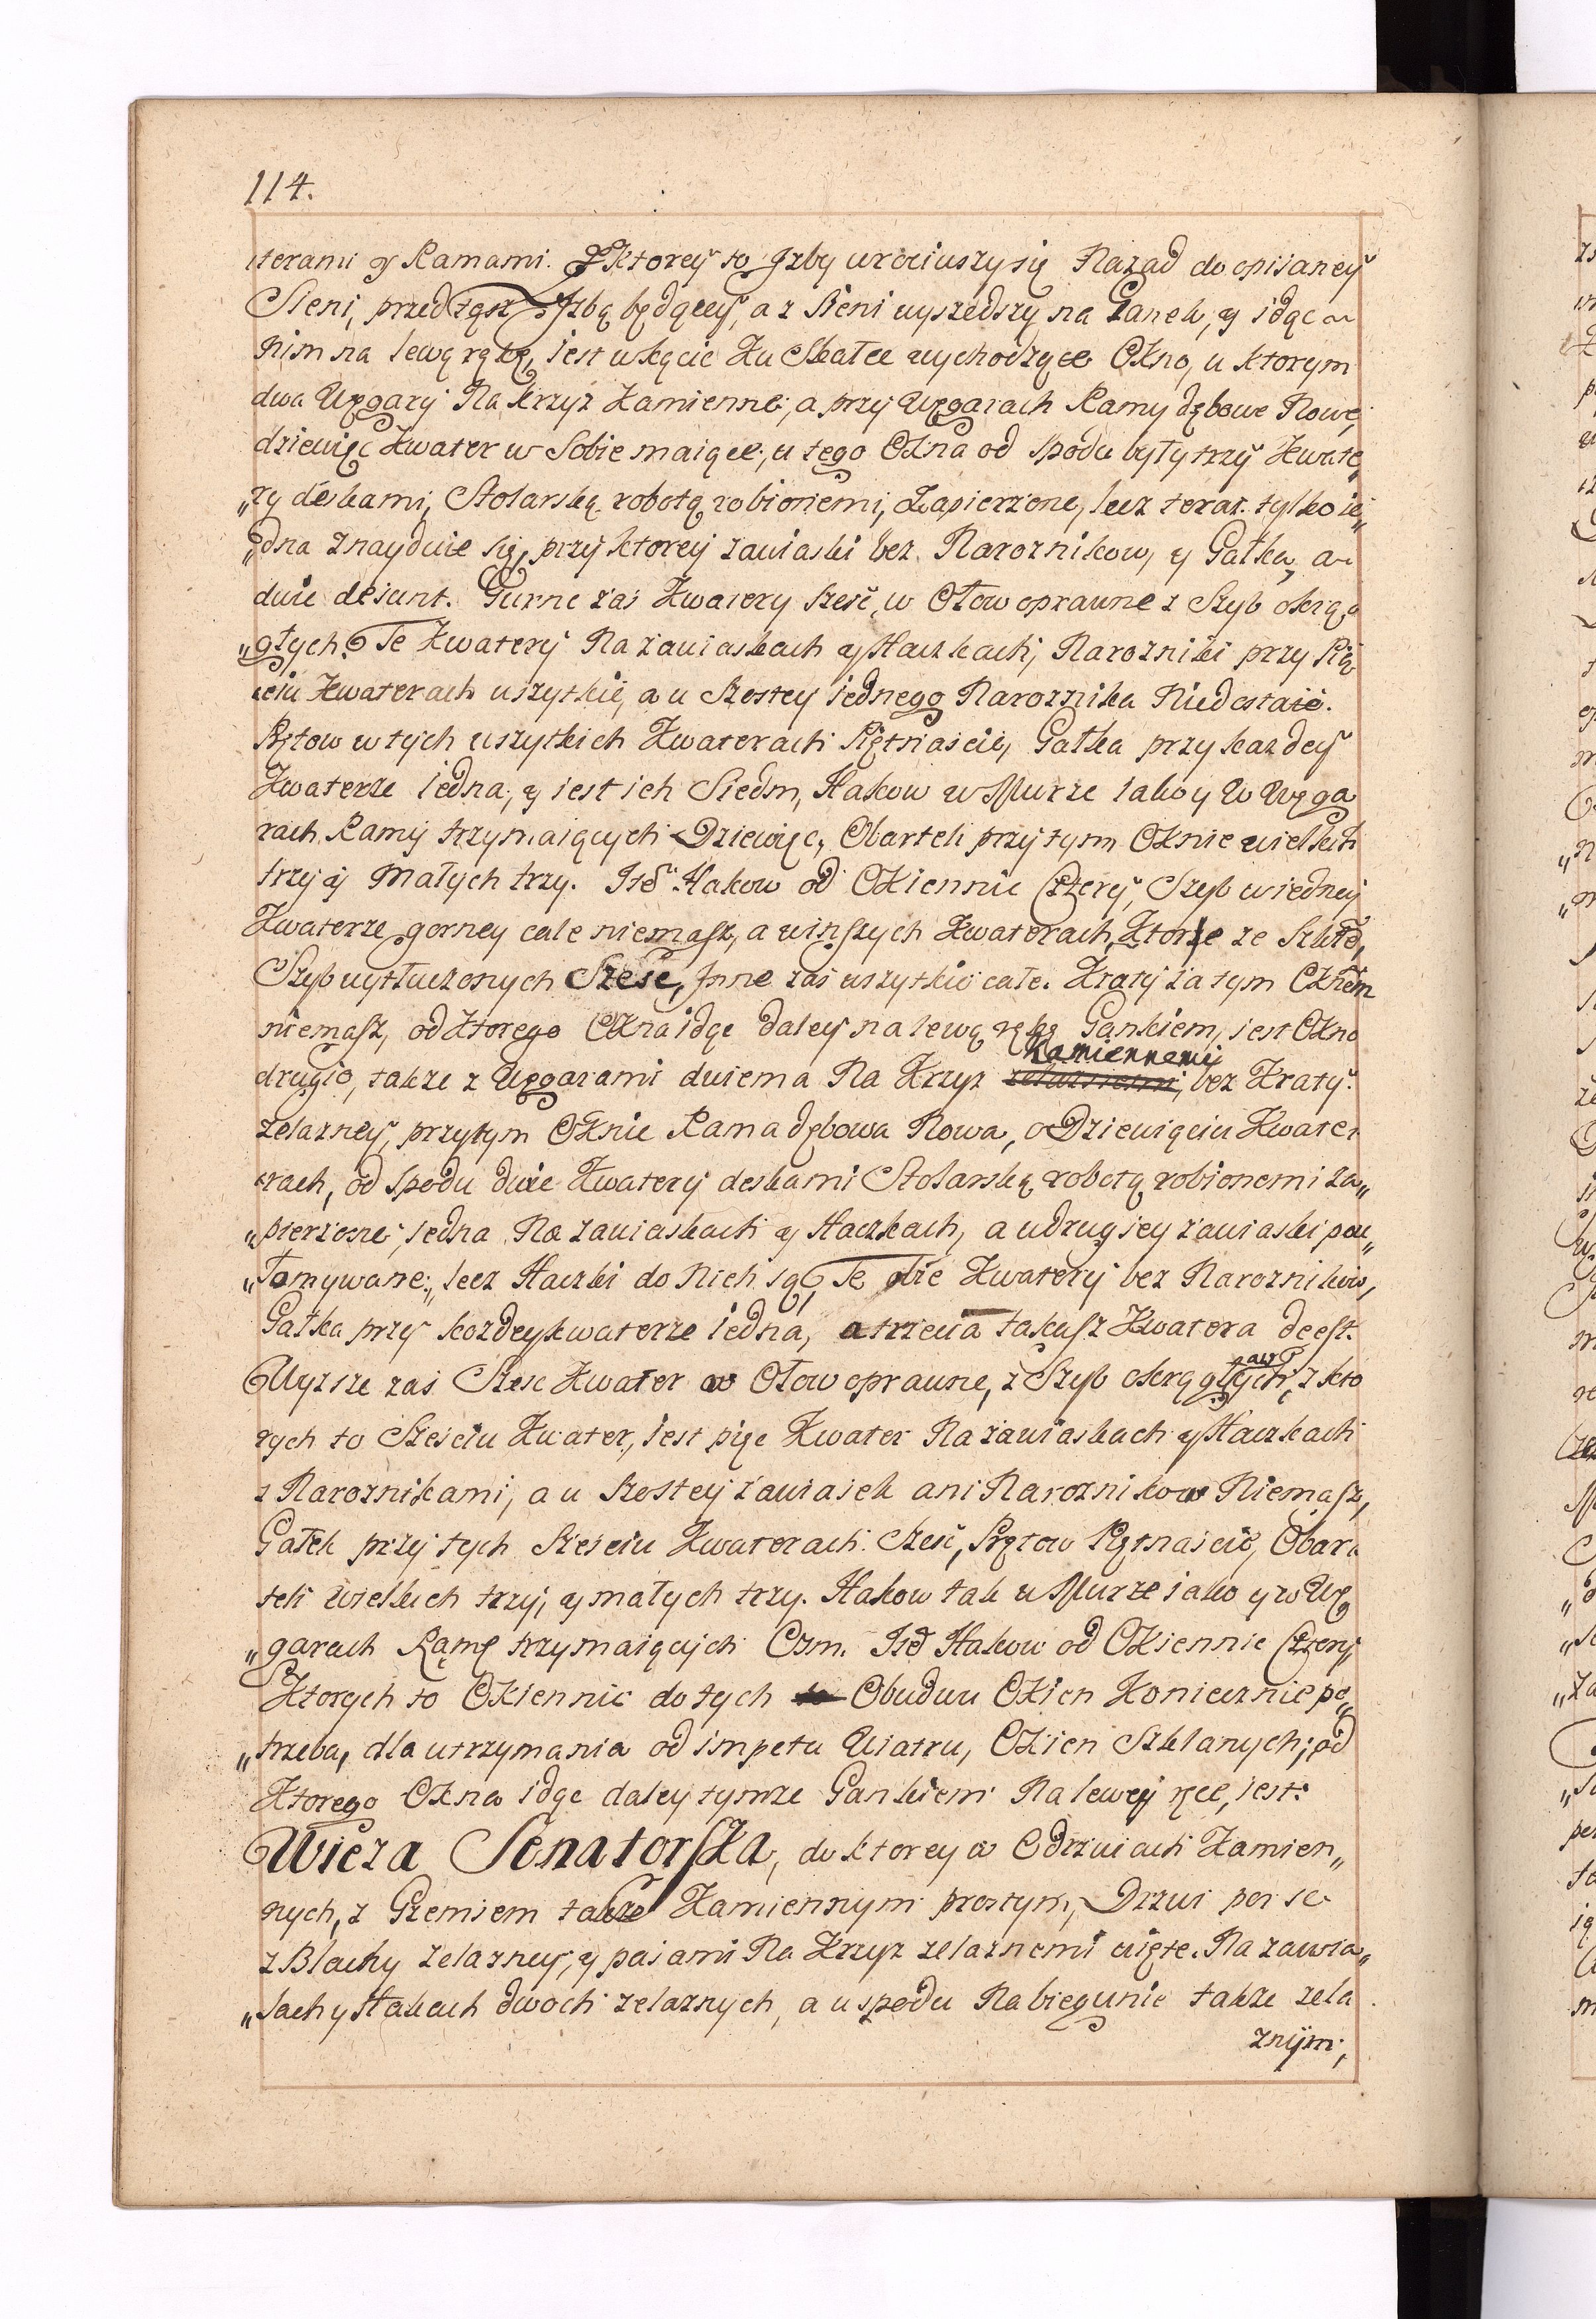 114.
terami y Ramami. Z Ktorey to Izby wrociwszy się Nazad do opisaney
Sieni, przed tąsz Izbą będącey, a z Sieni wyszedszy na Ganek, y idąc
nim na lewą rękę, iest w kącie Ku Skałce wychodzące Okno, w ktorym
dwa Węgary Na krzyż Kamienne, a przy Węgarach Ramy dębowe Nowe,
dziewięc Kwater w Sobie maiące, u tego Okna od spodu były trzy Kwate„
„ry deskami, Stolarską robotą robionemi, Zapierzone, lecz teraz tylko ie„
„dna znayduie się, przy ktorey zawiaski bez Naroznikow, y Gałka, a
dwie desunt. Gurne zaś Kwatery sześć, w Ołow oprawne z Szyb okrą„
„głych. Te Kwatery Na zawiaskach y Haczkach, Narozniki przy Pię„
ciu Kwaterach wszytkie, a u Szostey iednego Naroznika Niedostaie.
Prętow w tych wszytkich Kwaterach Piętnaście, Gałka przy kazdey
Kwaterze iedna, y iest ich Siedm, Hakow w Murze iako y W Węga
rach Ramy trzymaiących Dziewięc, Obarteli przy tym Oknie wielkich
trzy y Małych trzy. Itd. Hakow od Okiennic Cztery, Szyb w iedney
Kwaterze gorney cale niemasz, a w inszych Kwaterach, Ktore ze Szkłe,
Szyb wytłuczonych Sześć, Inne zaś wszytkie całe. Kraty za tym Oknem
niemasz, od Ktorego Okna idąc daley na lewą rękę Gankiem, iest Okno
drugie, takze z Węgarami dwiema Na Krzyz zelaznemi Kamiennemi, bez Kraty
zelazney, przy tym Oknie Rama dębowa Nowa, o Dziewięciu Kwate
rach, od spodu dwie Kwatery deskami Stolarską robotą robionemi za„
„pierzone, iedna Na zawiaskach y Haczkach, a u drugiey zawiaski pou„
„łomywane, lecz Haczki do Nich są, Te obie Kwatery bez Naroznikow,
Gałka przy kozdey kwaterze iedna, a trzecia takasz Kwatera deest.
Wyzsze zaś Sześć Kwater w Ołow oprawne, z Szyb okrągłych, z kto
rych to Sześciu Kwater, iest pięc Kwater Na zawiaskach y Haczkach
z Naroznikami, a u Szostey zawiasek ani Naroznikow Niemasz,
Gałek przy tych Sześciu Kwaterach Sześć, Prętow Piętnaście, Obar„
teli wielkich trzy, y małych trzy. Hakow tak w Murze iako y w Wę
„garach Ramę trzymaiących Osm. Itd Hakow od Okiennic Cztery,
Ktorych to Okiennic do tych Obudwu Okien Koniecznie po„
„trzeba, dla utrzymania od impetu Wiatru, Okien Szklanych; od
Ktorego Okna idąc daley tymze Gankiem Na lewey ręce, iest:
Wieza Senatorska, do ktorey w Odrzwiach Kamien„
nych, z Gzemsem takze Kamiennym prostym, Drzwi per se
z Blachy zelazney, y pasami Na Krzyz zelaznemi więte. Na zawia„
„sach y Hakach dwoch zelaznych, a u spodu Na biegunie takze zela
znym,